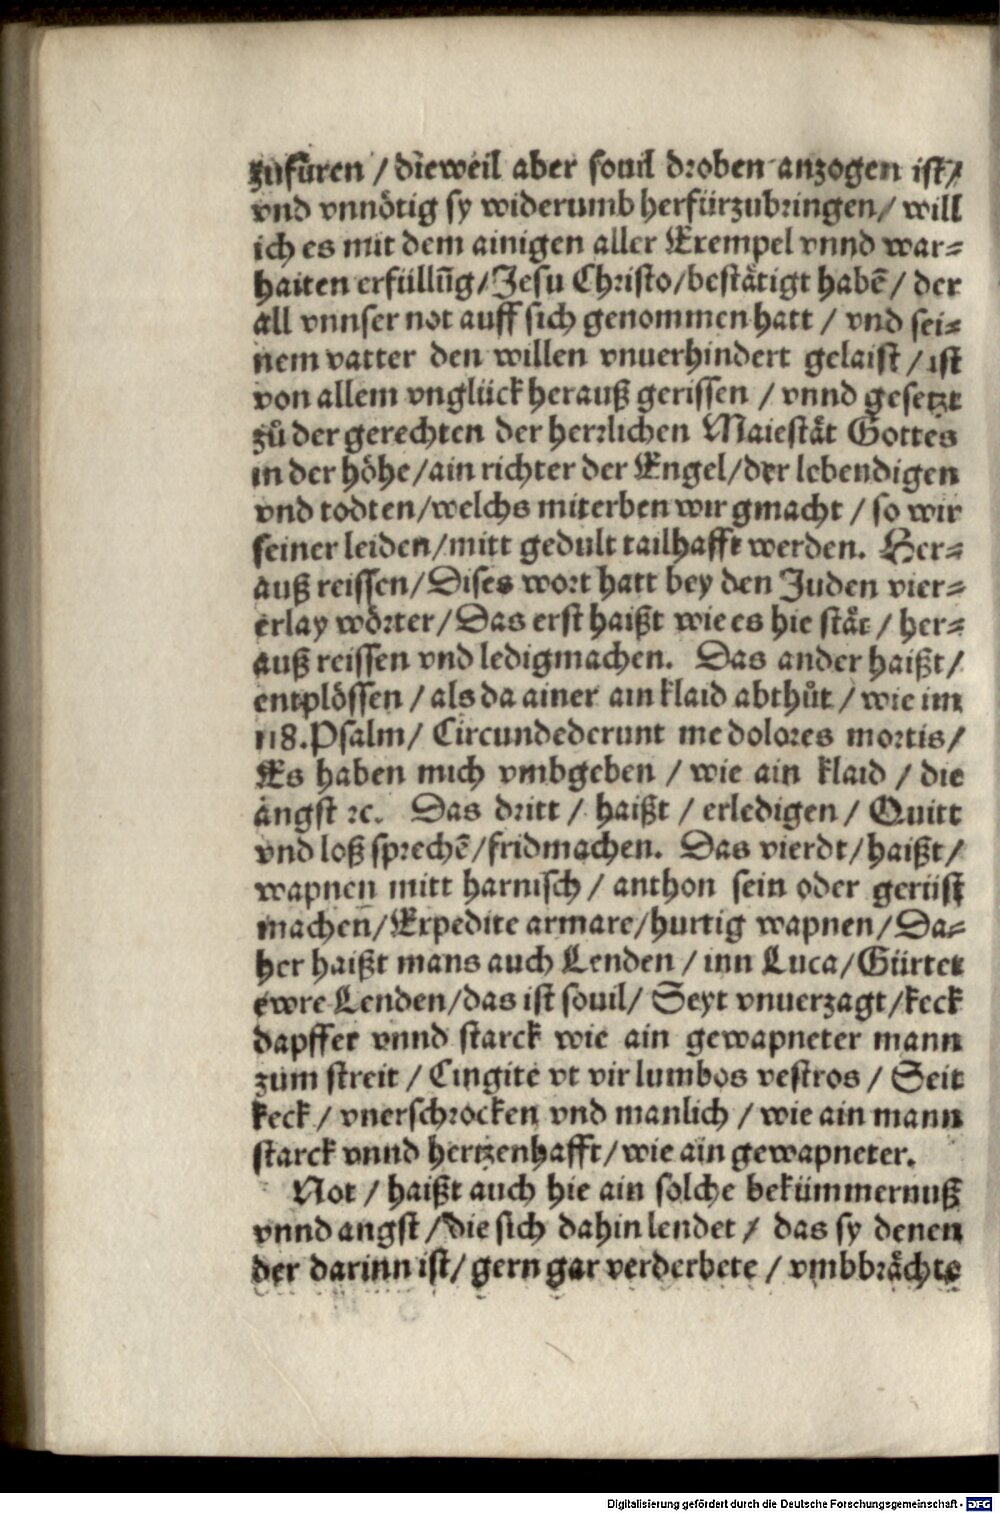 zufüren / dieweil aber souil droben anzogen ist /
vnd vnnötig sy widerumb herfürzubringen / will
ich es mit dem ainigen aller Exempel vnnd war⸗
haiten erfüllūg / Jesu Christo / bestätigt habē / der
all vnnser not auff sich genommen hatt / vnd sei⸗
nem vatter den willen vnuerhindert gelaist / ist
von allem vnglück herauß gerissen / vnnd gesetzt
zů der gerechten der herrlichen Maiestät Gottes
in der höhe / ain richter der Engel / der lebendigen
vnd todten / welchs miterben wir gmacht / so wir
seiner leiden / mitt gedult tailhafft werden. Her⸗
auß reissen / Dises wort hatt bey den Juden vier⸗
erlay wörter / Das erst haißt wie es hie stät / her⸗
auß reissen vnd ledigmachen. Das ander haißt /
entplössen / als da ainer ain klaid abthůt / wie im
118. Psalm / Circundederunt me dolores mortis /
Es haben mich vmbgeben / wie ain klaid / die
ängst ꝛc. Das dritt / haißt / erledigen / Quitt
vnd loß sprechē / fridmachen. Das vierdt / haißt /
wapnen mitt harnisch / anthon sein oder gerüst
machen / Expedite armare / hurtig wapnen / Da⸗
her haißt mans auch Lenden / inn Luca / Gürtet
ewre Lenden / das ist souil / Seyt vnuerzagt / keck
dapffer vnnd starck wie ain gewapneter mann
zum streit / Cingite vt vir lumbos vestros / Seit
keck / vnerschrocken vnd manlich / wie ain mann
starck vnnd hertzenhafft / wie ain gewapneter.
Not / haißt auch hie ain solche bekümmernuß
vnnd angst / die sich dahin lendet / das sy denen
der darinn ist / gern gar verderbete / vmbbrächte
Digitalisierung gefördert durch die Deutsche Forschungsgemeinschaft - DFG